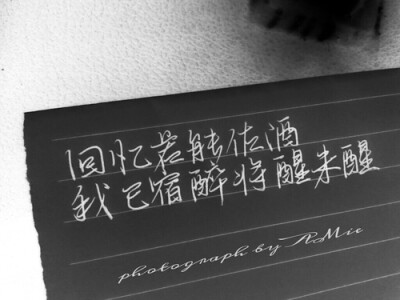 回忆若能佐酒
我已宿醉将醒未醒
photograph by RMie